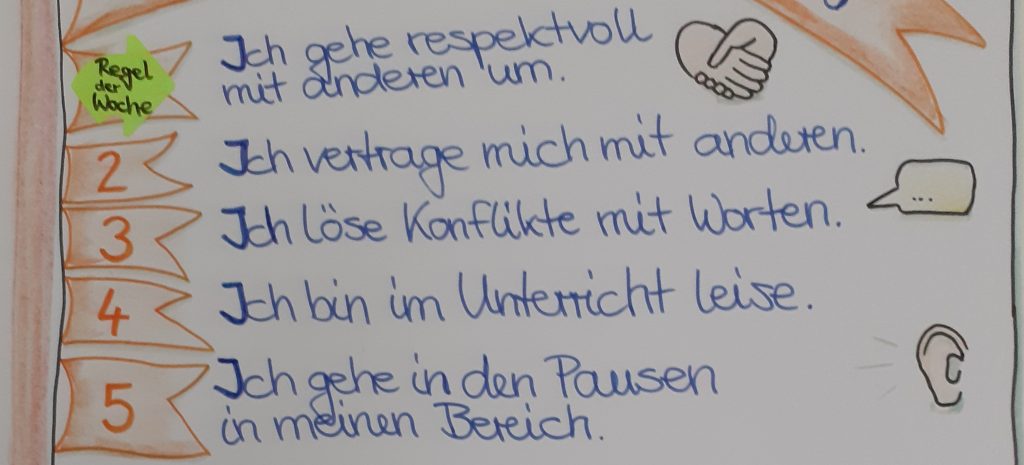 Regel
der
Woche
Ich gehe respektvoll
mit anderen um.
2 Ich vertrage mich mit anderen.
...
3 Ich löse Konflikte mit Worten.
4 Ich bin im Unterricht leise.
5 Ich gehe in den Pausen
in meinen Bereich.